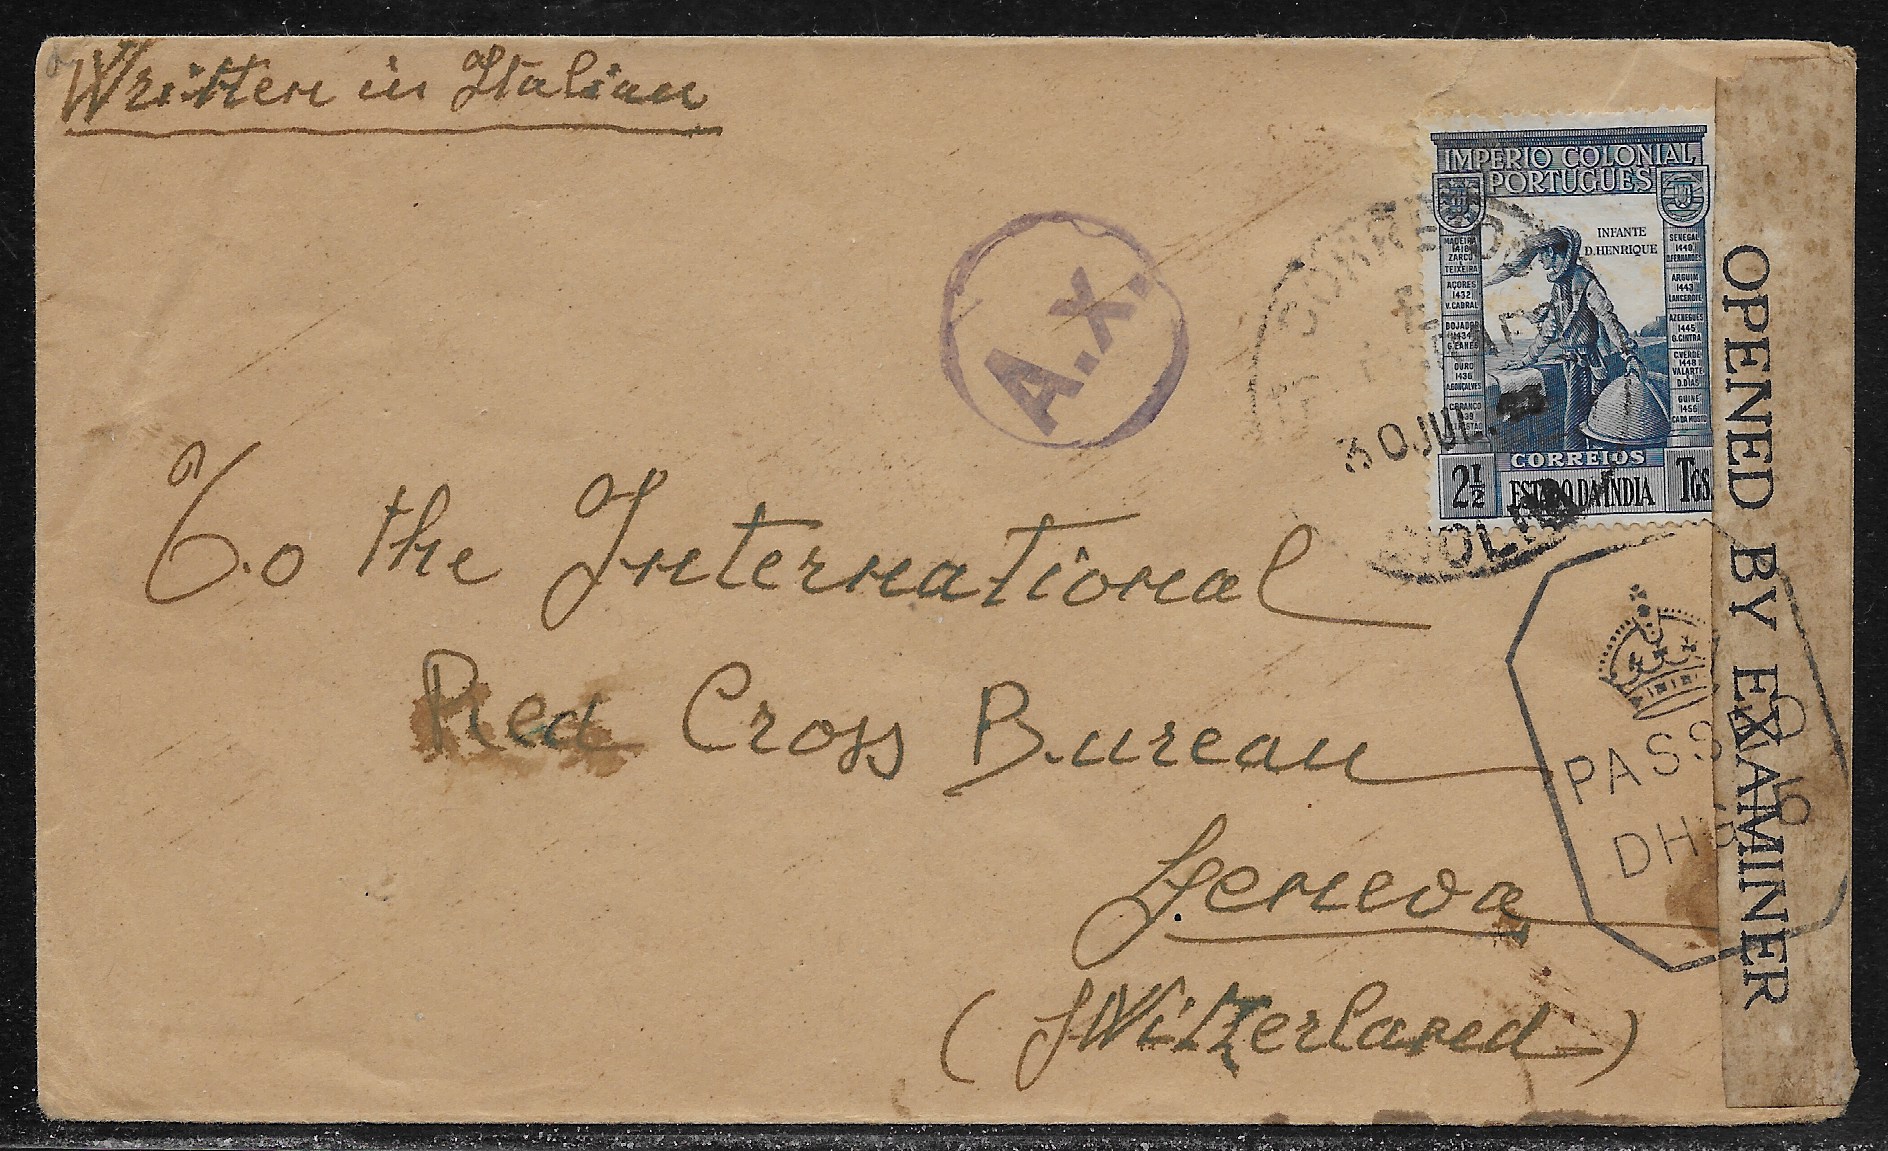 Written in Italian
A.x.
IMPERIO COLONIAL
PORTUGUES
INFANTE
D. HENRIQUE
MADEIRA
1418
ZARCO
E
TEIXEIRA
AÇORES
1432
V. CABRAL
BOJADOR
1434
G. EANES
OURO
1436
A. GONÇALVES
SENEGAL
1440
D. FERNANDES
ARGUIM
1443
LANCEROTE
AZENEGUES
1445
G. CINTRA
C. VERDE
1448
VALARTE
D. DIAS
GUINÉ
1456
CADAMOSTO
CORREIOS
2½ ESTADO DA INDIA Tgs.
CORREIOS
E
30 JUL.
OPENED BY EXAMINER
PASSED
To the International
Red Cross Bureau
Geneva
(Switzerland)